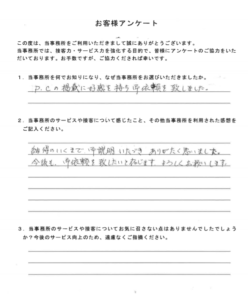 お客様アンケート
この度は、当事務所をご利用いただきまして誠にありがとうございます。
当事務所では、接客力・サービス力を強化する目的で、皆様にアンケートのご協力をいた
だいております。お手数ですが、ご協力くだされば幸いです。
1．当事務所を何でお知りになり、なぜ当事務所をお選びいただきましたか。
P.Cの掲載に好感を持ち御依頼を致しました。
2．当事務所のサービスや接客について感じたこと、その他当事務所を利用された感想を
ご記入ください。
納得のいくまで御説明いただき ありがたく思いました。
今後も、御依頼を致したいと存じます よろしくお願いします
3．当事務所のサービスや接客についてお気に召さない点はありませんでしたでしょう
か？今後のサービス向上のため、遠慮なくご指摘ください。